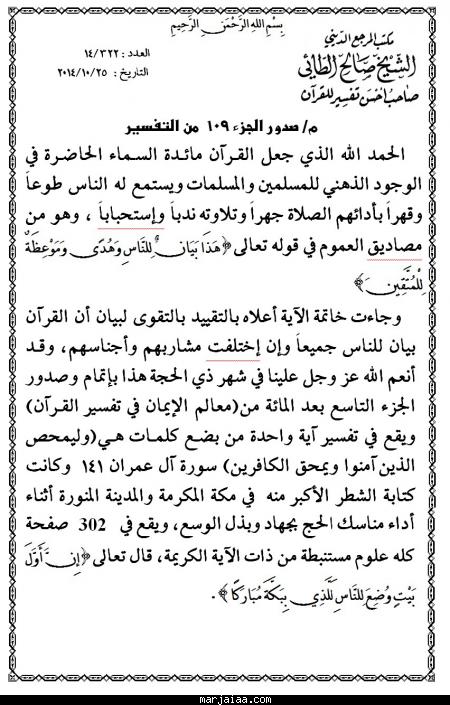 بِسْمِ اللهِ الرَّحْمَنِ الرَّحِيمِ
مكتب المرجع الديني
الشيخ صالح الطائي
صاحب أحسن تفسير للقرآن
العدد : ١٤/٣٢٢
التاريخ : ٢٠١٤/١٠/٢٥
م/ صدور الجزء ١٠٩ من التفسير
الحمد الله الذي جعل القرآن مائدة السماء الحاضرة في
الوجود الذهني للمسلمين والمسلمات ويستمع له الناس طوعاً
وقهراً بأدائهم الصلاة جهراً وتلاوته ندباً وإستحباباً ، وهو من
مصاديق العموم في قوله تعالى ﴿هَذَا بَيَانٌ لِلنَّاسِ وَهُدًى وَمَوْعِظَةٌ
لِلْمُتَّقِينَ﴾
وجاءت خاتمة الآية أعلاه بالتقييد بالتقوى لبيان أن القرآن
بيان للناس جميعاً وإن إختلفت مشاربهم وأجناسهم، وقد
أنعم الله عز وجل علينا في شهر ذي الحجة هذا بإتمام وصدور
الجزء التاسع بعد المائة من(معالم الإيمان في تفسير القرآن)
ويقع في تفسير آية واحدة من بضع كلمات هي(وليمحص
الذين آمنوا ويمحق الكافرين) سورة آل عمران ١٤١ وكانت
كتابة الشطر الأكبر منه في مكة المكرمة والمدينة المنورة أثناء
أداء مناسك الحج بجهاد وبذل الوسع، ويقع في 302 صفحة
كله علوم مستنبطة من ذات الآية الكريمة، قال تعالى ﴿إِنَّ أَوَّلَ
بَيْتٍ وُضِعَ لِلنَّاسِ لَلَّذِي بِبَكَّةَ مُبَارَكًا﴾ .
marjaiaa.com